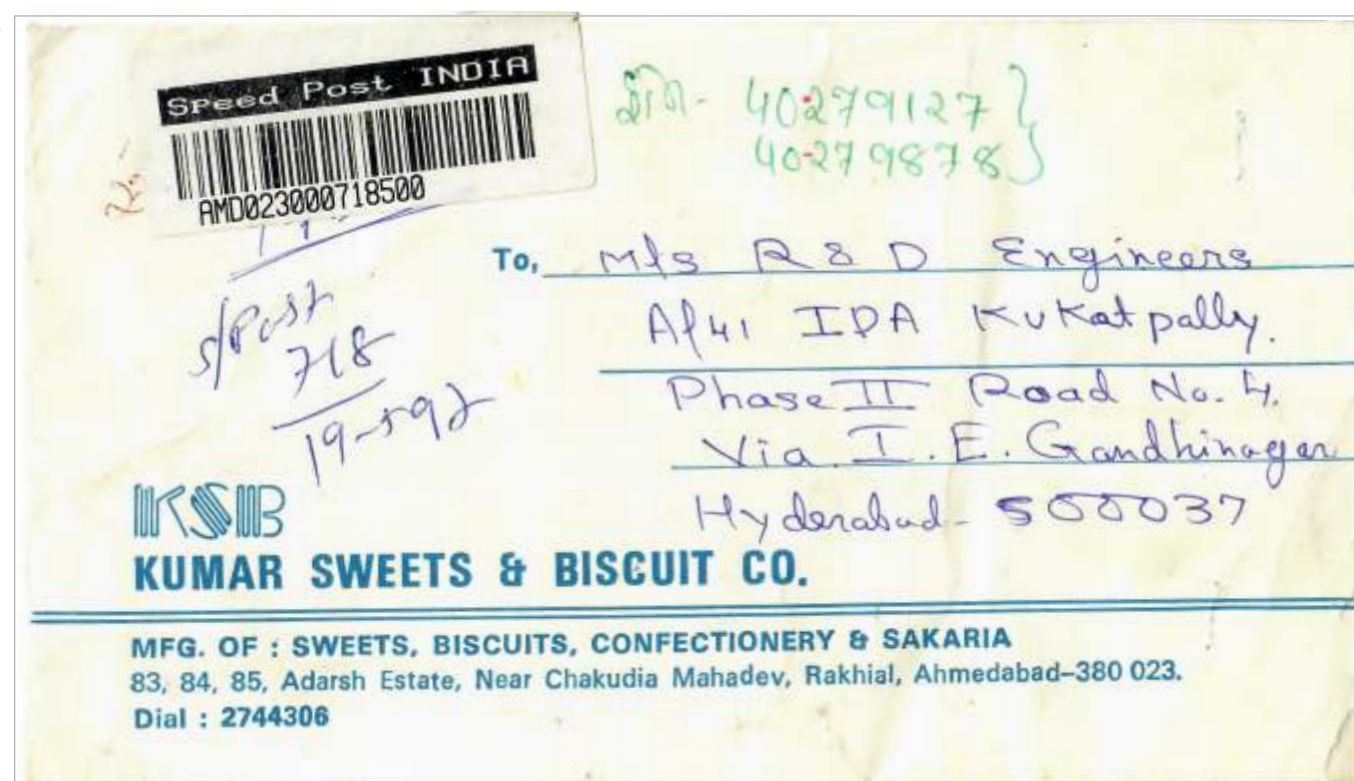 Speed Post INDIA
AMD023000718500
40279127 }
40279878 }
To, M/s R & D Engineers
A/41 IDA Kukatpally.
Phase II Road No. 4.
Via I.E. Gandhinagar
Hyderabad - 500037
S/Post
718
KSB
KUMAR SWEETS & BISCUIT CO.
MFG. OF : SWEETS, BISCUITS, CONFECTIONERY & SAKARIA
83, 84, 85, Adarsh Estate, Near Chakudia Mahadev, Rakhial, Ahmedabad–380 023.
Dial : 2744306